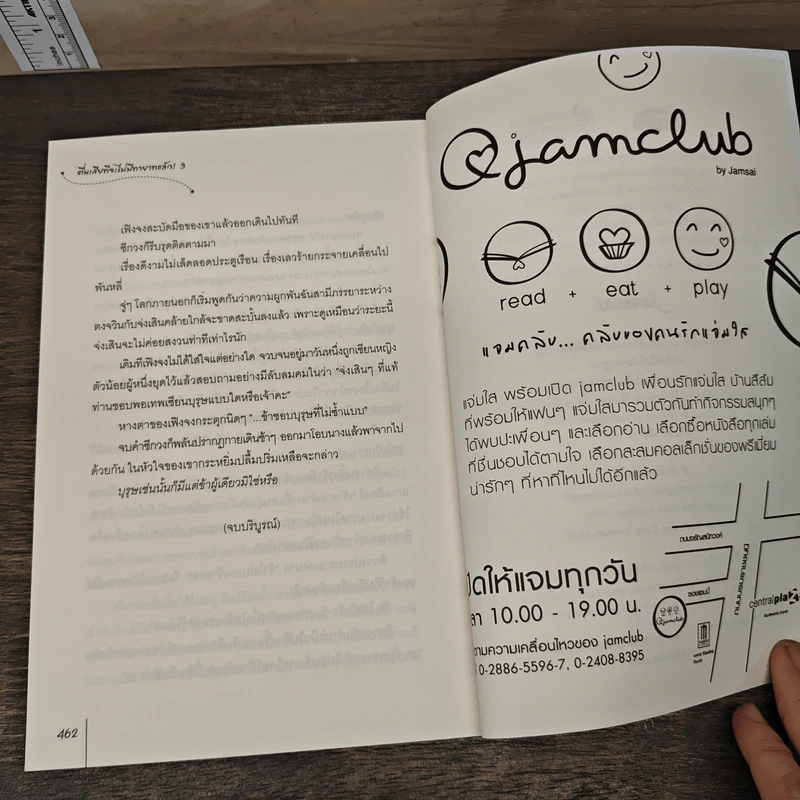 ตื่นเสียทีจะไม่มีทายาทแล้ว! 3
เฟิงจงสะบัดมือของเขาแล้วออกเดินไปทันที
ซีกวงก็รีบรุดติดตามมา
เรื่องดีงามไม่เล็ดลอดประตูเรือน เรื่องเลวร้ายกระจายเคลื่อนไป
พันหลี่
จู่ๆ โลกภายนอกก็เริ่มพูดกันว่าความผูกพันฉันสามีภรรยาระหว่าง
ตงจวินกับจ่งเสินคล้ายใกล้จะขาดสะบั้นลงแล้ว เพราะดูเหมือนว่าระยะนี้
จ่งเสินจะไม่ค่อยสงวนท่าทีเท่าไรนัก
เดิมทีเฟิงจงไม่ได้ใส่ใจแต่อย่างใด จวบจนอยู่มาวันหนึ่งถูกเซียนหญิง
ตัวน้อยผู้หนึ่งยุดไว้แล้วสอบถามอย่างมีลับลมคมในว่า "จ่งเสินๆ ที่แท้
ท่านชอบพอเทพเซียนบุรุษแบบใดหรือเจ้าคะ"
หางตาของเฟิงจงกระตุกนิดๆ "...ข้าชอบบุรุษที่ไม่ซ้ำแบบ"
จบคำซีกวงก็พลันปรากฏกายเดินช้าๆ ออกมาโอบนางแล้วพาจากไป
ด้วยกัน ในหัวใจของเขากระหยิ่มปลื้มปริ่มเหลือจะกล่าว
บุรุษเช่นนั้นก็มีแต่ข้าผู้เดียวมิใช่หรือ
(จบบริบูรณ์)
462
@jamclub
by Jamsai
read + eat + play
แจมคลับ... คลับของคนรักแจ่มใส
แจ่มใส พร้อมเปิด jamclub เพื่อนรักแจ่มใส บ้านสีส้ม
ที่พร้อมให้แฟนๆ แจ่มใสมารวมตัวกันทำกิจกรรมสนุกๆ
ได้พบปะเพื่อนๆ และเลือกอ่าน เลือกซื้อหนังสือทุกเล่ม
ที่ชื่นชอบได้ตามใจ เลือกสะสมคอลเล็กชั่นของพรีเมี่ยม
น่ารักๆ ที่หาที่ไหนไม่ได้อีกแล้ว
ปิดให้แจมทุกวัน
ลา 10.00 - 19.00 น.
ตามความเคลื่อนไหวของ jamclub
0-2886-5596-7, 0-2408-8395
ถนนจรัญสนิทวงศ์
ซอยแฮมมี่
@jamclub
centralplaza